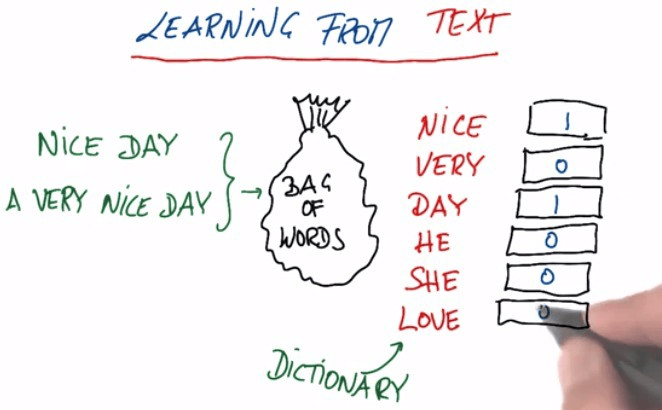 LEARNING FROM TEXT
NICE DAY
A VERY NICE DAY
BAG
OF
WORDS
NICE 1
VERY 0
DAY 1
HE 0
SHE 0
LOVE 0
DICTIONARY